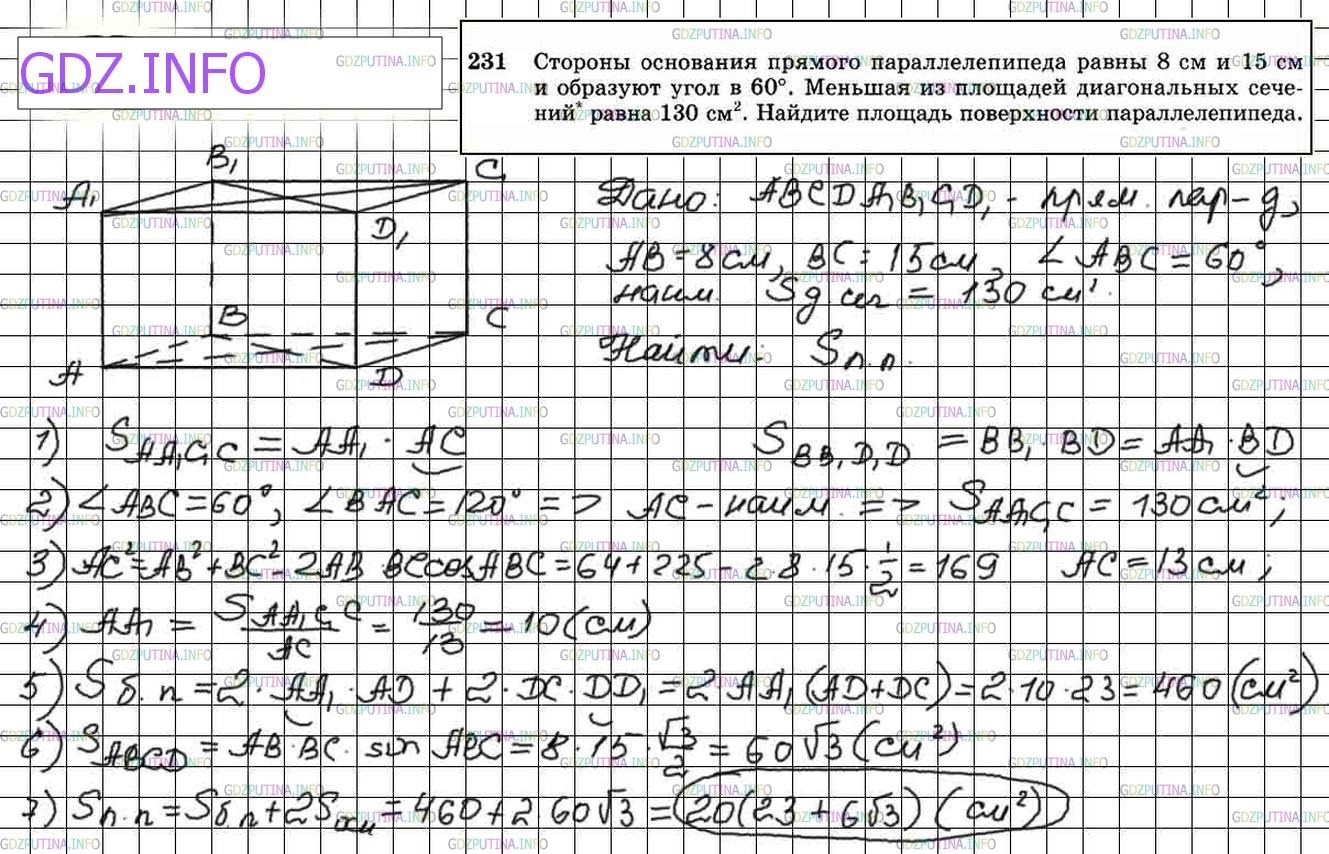 GDZ.INFO
231 Стороны основания прямого параллелепипеда равны 8 см и 15 см
и образуют угол в 60°. Меньшая из площадей диагональных сече-
ний* равна 130 см². Найдите площадь поверхности параллелепипеда.
B₁
C₁
A₁
D₁
B
C
A
D
Дано: ABCDA₁B₁C₁D₁ - прям. пар-д,
AB = 8 см, BC = 15 см, ∠ABC = 60°,
наим. Sд.сеч = 130 см².
Найти: Sп.п.
1) SAA₁C₁C = AA₁ · AC SBB₁D₁D = BB₁ · BD = AA₁ · BD
2) ∠ABC = 60°, ∠BAC = 120° => AC - наим. => SAA₁C₁C = 130 см²,
3) AC² = AB² + BC² - 2AB BC cos ABC = 64 + 225 - 2·8·15·1/2 = 169 AC = 13 см;
4) AA₁ = SAA₁C₁C/AC = 130/13 = 10 (см)
5) Sб.п = 2·AA₁·AD + 2·DC·DD₁ = 2·AA₁(AD+DC) = 2·10·23 = 460 (см²)
6) SABCD = AB·BC·sin ABC = 8·15·√3/2 = 60√3 (см²)
7) Sп.п = Sб.п + 2Sосн = 460 + 2·60√3 = 20(23 + 6√3) (см²)